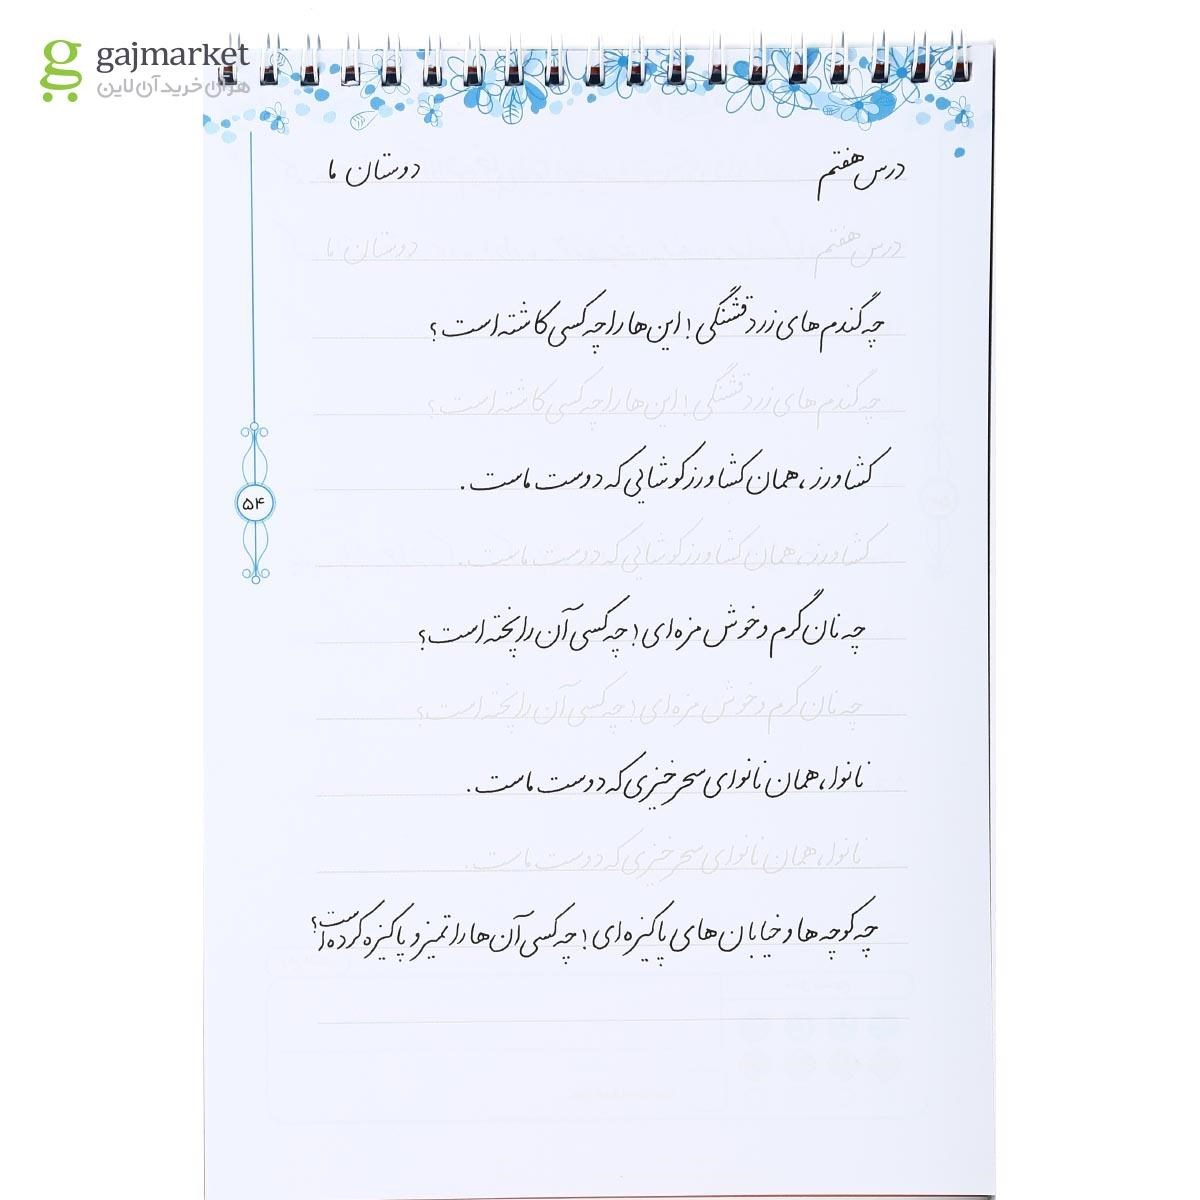 gajmarket
هزاران خرید آن لاین
درس هفتم دوستان ما
درس هفتم دوستان ما
چه گندم های زرد قشنگی! این ها را چه کسی کاشته است؟
چه گندم های زرد قشنگی! این ها را چه کسی کاشته است؟
کشاورز، همان کشاورز کوشایی که دوست ماست.
کشاورز، همان کشاورز کوشایی که دوست ماست.
۵۴
چه نان گرم و خوش مزه ای! چه کسی آن را پخته است؟
چه نان گرم و خوش مزه ای! چه کسی آن را پخته است؟
نانوا، همان نانوای سحرخیزی که دوست ماست.
نانوا، همان نانوای سحرخیزی که دوست ماست.
چه کوچه ها و خیابان های پاکیزه ای! چه کسی آن ها را تمیز و پاکیزه کرده است؟